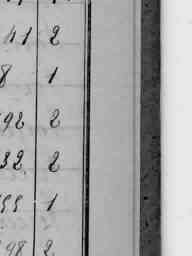 41 2
8 1
92 2
32 2
55 1
98 2